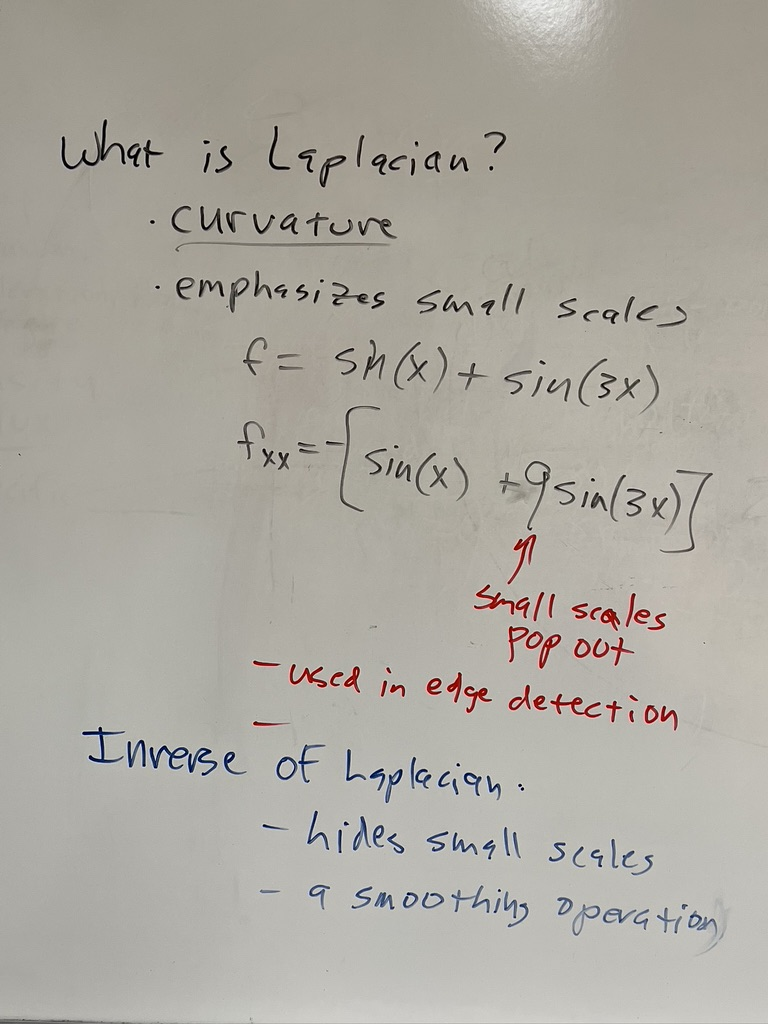 What is Laplacian?
· curvature
· emphasizes small scales
f = sin(x) + sin(3x)
fxx = -[sin(x) + 9 sin(3x)]
small scales
pop out
- used in edge detection
-
Inverse of Laplacian.
- hides small scales
- a smoothing operation